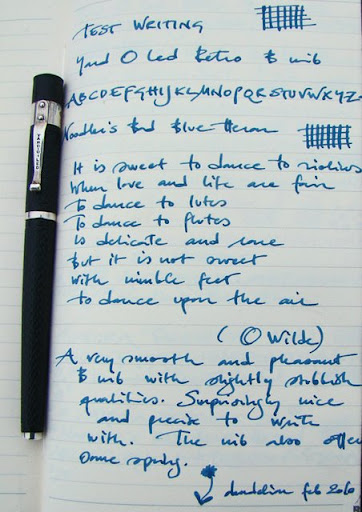 TEST WRITING
Yard O Led Retro B nib
ABCDEFGHIJKLMNOPQRSTUVWXYZ
Noodler's Bad Blue Heron
It is sweet to dance to violins
When love and life are fair
To dance to lutes
To dance to flutes
Is delicate and rare
But it is not sweet
with nimble feet
to dance upon the air
(O Wilde)
A very smooth and pleasant
B nib with slightly stubbish
qualities. Surprisingly nice
and precise to write
with. The nib also offers
some spring.
dandelion feb 2010